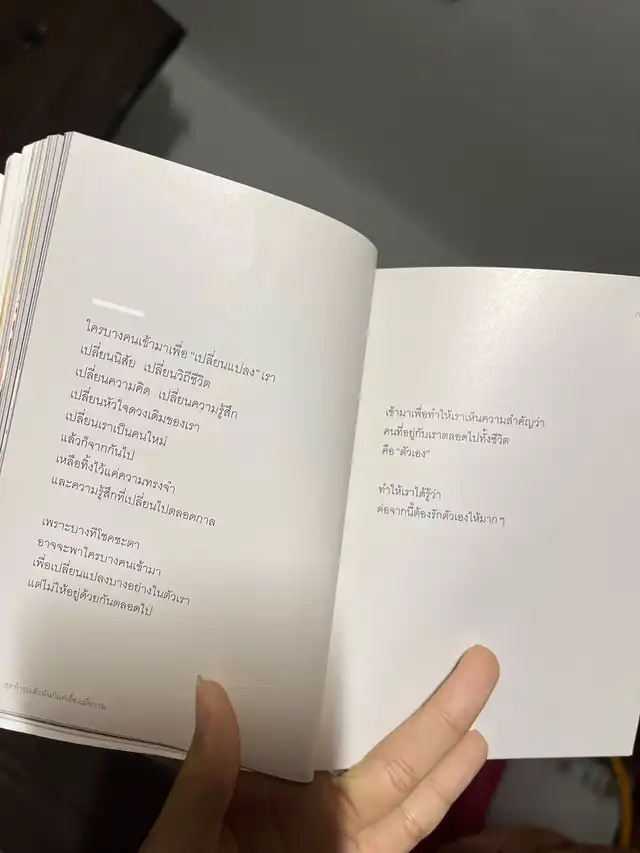 ใครบางคนเข้ามาเพื่อ “เปลี่ยนแปลง” เรา
เปลี่ยนนิสัย เปลี่ยนวิถีชีวิต
เปลี่ยนความคิด เปลี่ยนความรู้สึก
เปลี่ยนหัวใจดวงเดิมของเรา
เปลี่ยนเราเป็นคนใหม่
แล้วก็จากกันไป
เหลือทิ้งไว้แค่ความทรงจำ
และความรู้สึกที่เปลี่ยนไปตลอดกาล
เพราะบางทีโชคชะตา
อาจจะพาใครบางคนเข้ามา
เพื่อเปลี่ยนแปลงบางอย่างในตัวเรา
แต่ไม่ให้อยู่ด้วยกันตลอดไป
สุดท้ายแล้วมันก็แค่เรื่องเมื่อวาน
เข้ามาเพื่อทำให้เราเห็นความสำคัญว่า
คนที่อยู่กับเราตลอดไปทั้งชีวิต
คือ “ตัวเอง”
ทำให้เราได้รู้ว่า
ต่อจากนี้ต้องรักตัวเองให้มากๆ